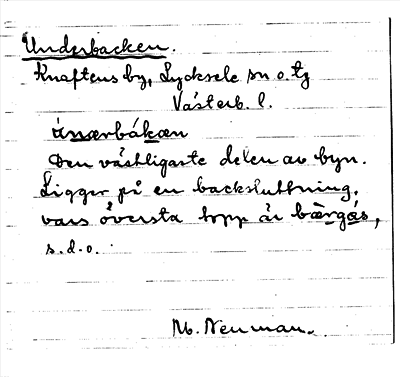 Underbacken.
Knaftens by, Lycksele sn o. tg
Västerb. l.
ú̀nærbákæn
Den västligaste delen av byn.
Ligger på en backsluttning,
vars översta topp är bærgǽs,
s.d.o.
M. Neuman.